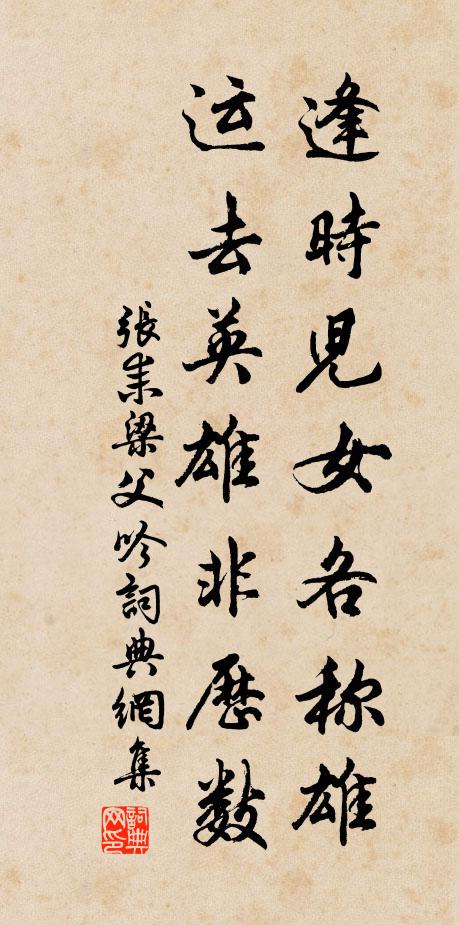 逢時児女各称雄
运去英雄非歷数
張耒梁父吟詞典網集
詞典
网印